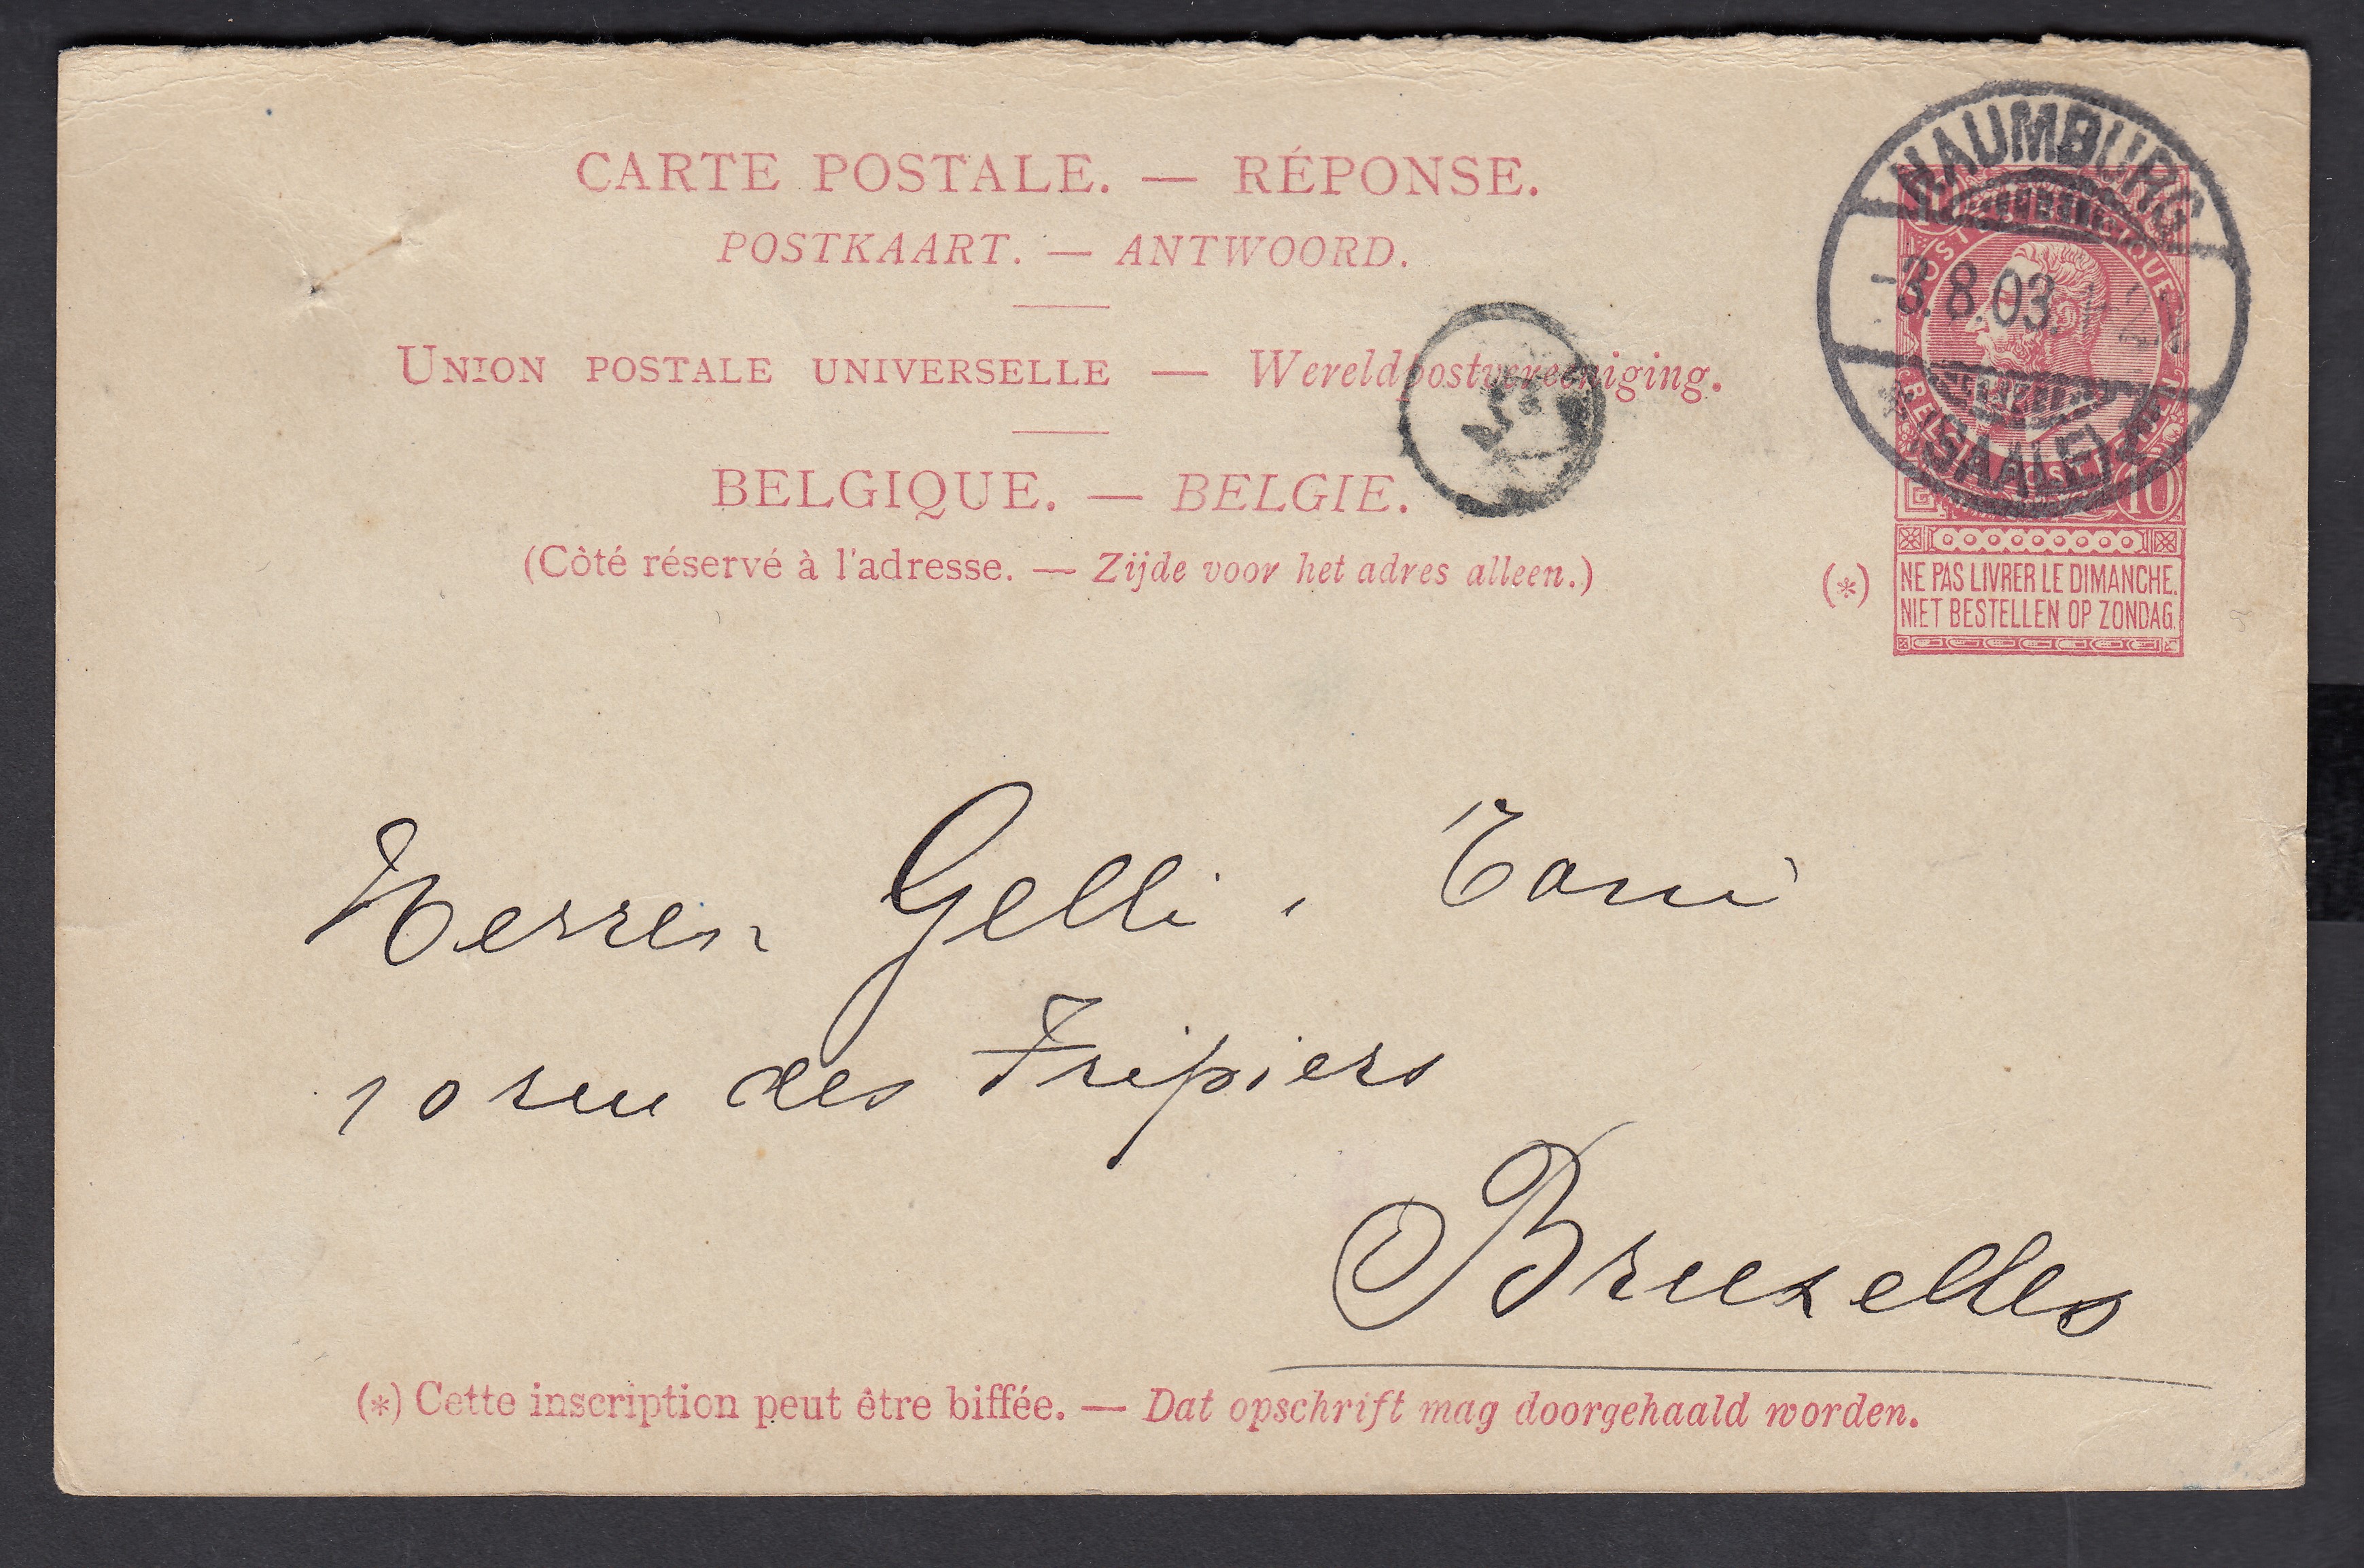 CARTE POSTALE. — RÉPONSE.
POSTKAART. — ANTWOORD.
UNION POSTALE UNIVERSELLE — Wereldpostvereeniging.
BELGIQUE. — BELGIE.
(Côté réservé à l'adresse. — Zijde voor het adres alleen.)
NAUMBURG
-3.8.03.
(SAALE)
10
(*) NE PAS LIVRER LE DIMANCHE.
NIET BESTELLEN OP ZONDAG.
Herren Gelli, Tani
10 rue des Fripiers
Bruxelles
(*) Cette inscription peut être biffée. — Dat opschrift mag doorgehaald worden.